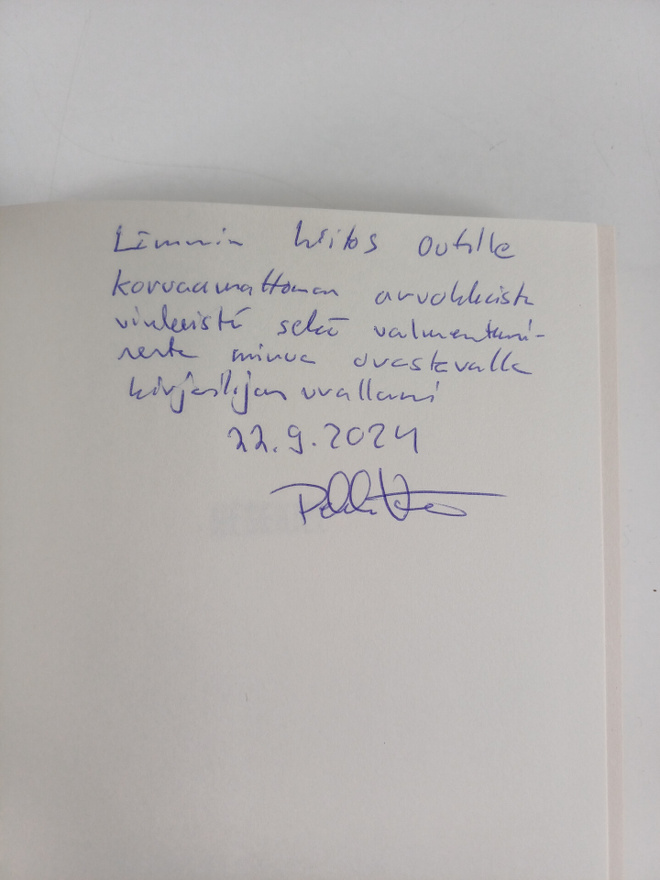 Lämmin kiitos Outille
korvaamattoman arvokkaista
vinkeistä sekä valmentami-
sesta minua avustavalla
kirjailijan urallani
22.9.2024